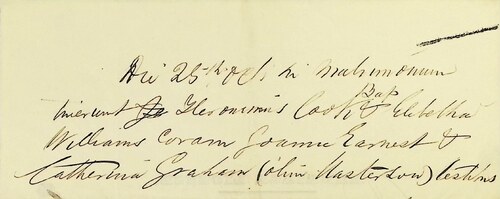 Die 25th Oct. in matrimonium
inierunt Hieronimus Cook & Elibetha
Bap
Williams coram Joanne Earnest &
Catherina Graham (olim Masterson) testins